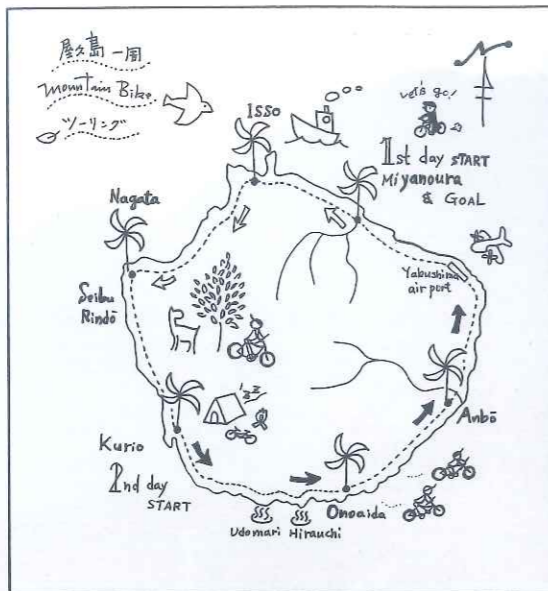 屋久島一周
Mountain Bike
ツーリング
N
Let's go!
Isso
1st day START
Miyanoura
& GOAL
Nagata
Yakushima
airport
Seibu
Rindō
zzz
Anbō
Kurio
2nd day
START
Onoaida
Udomari Hirauchi